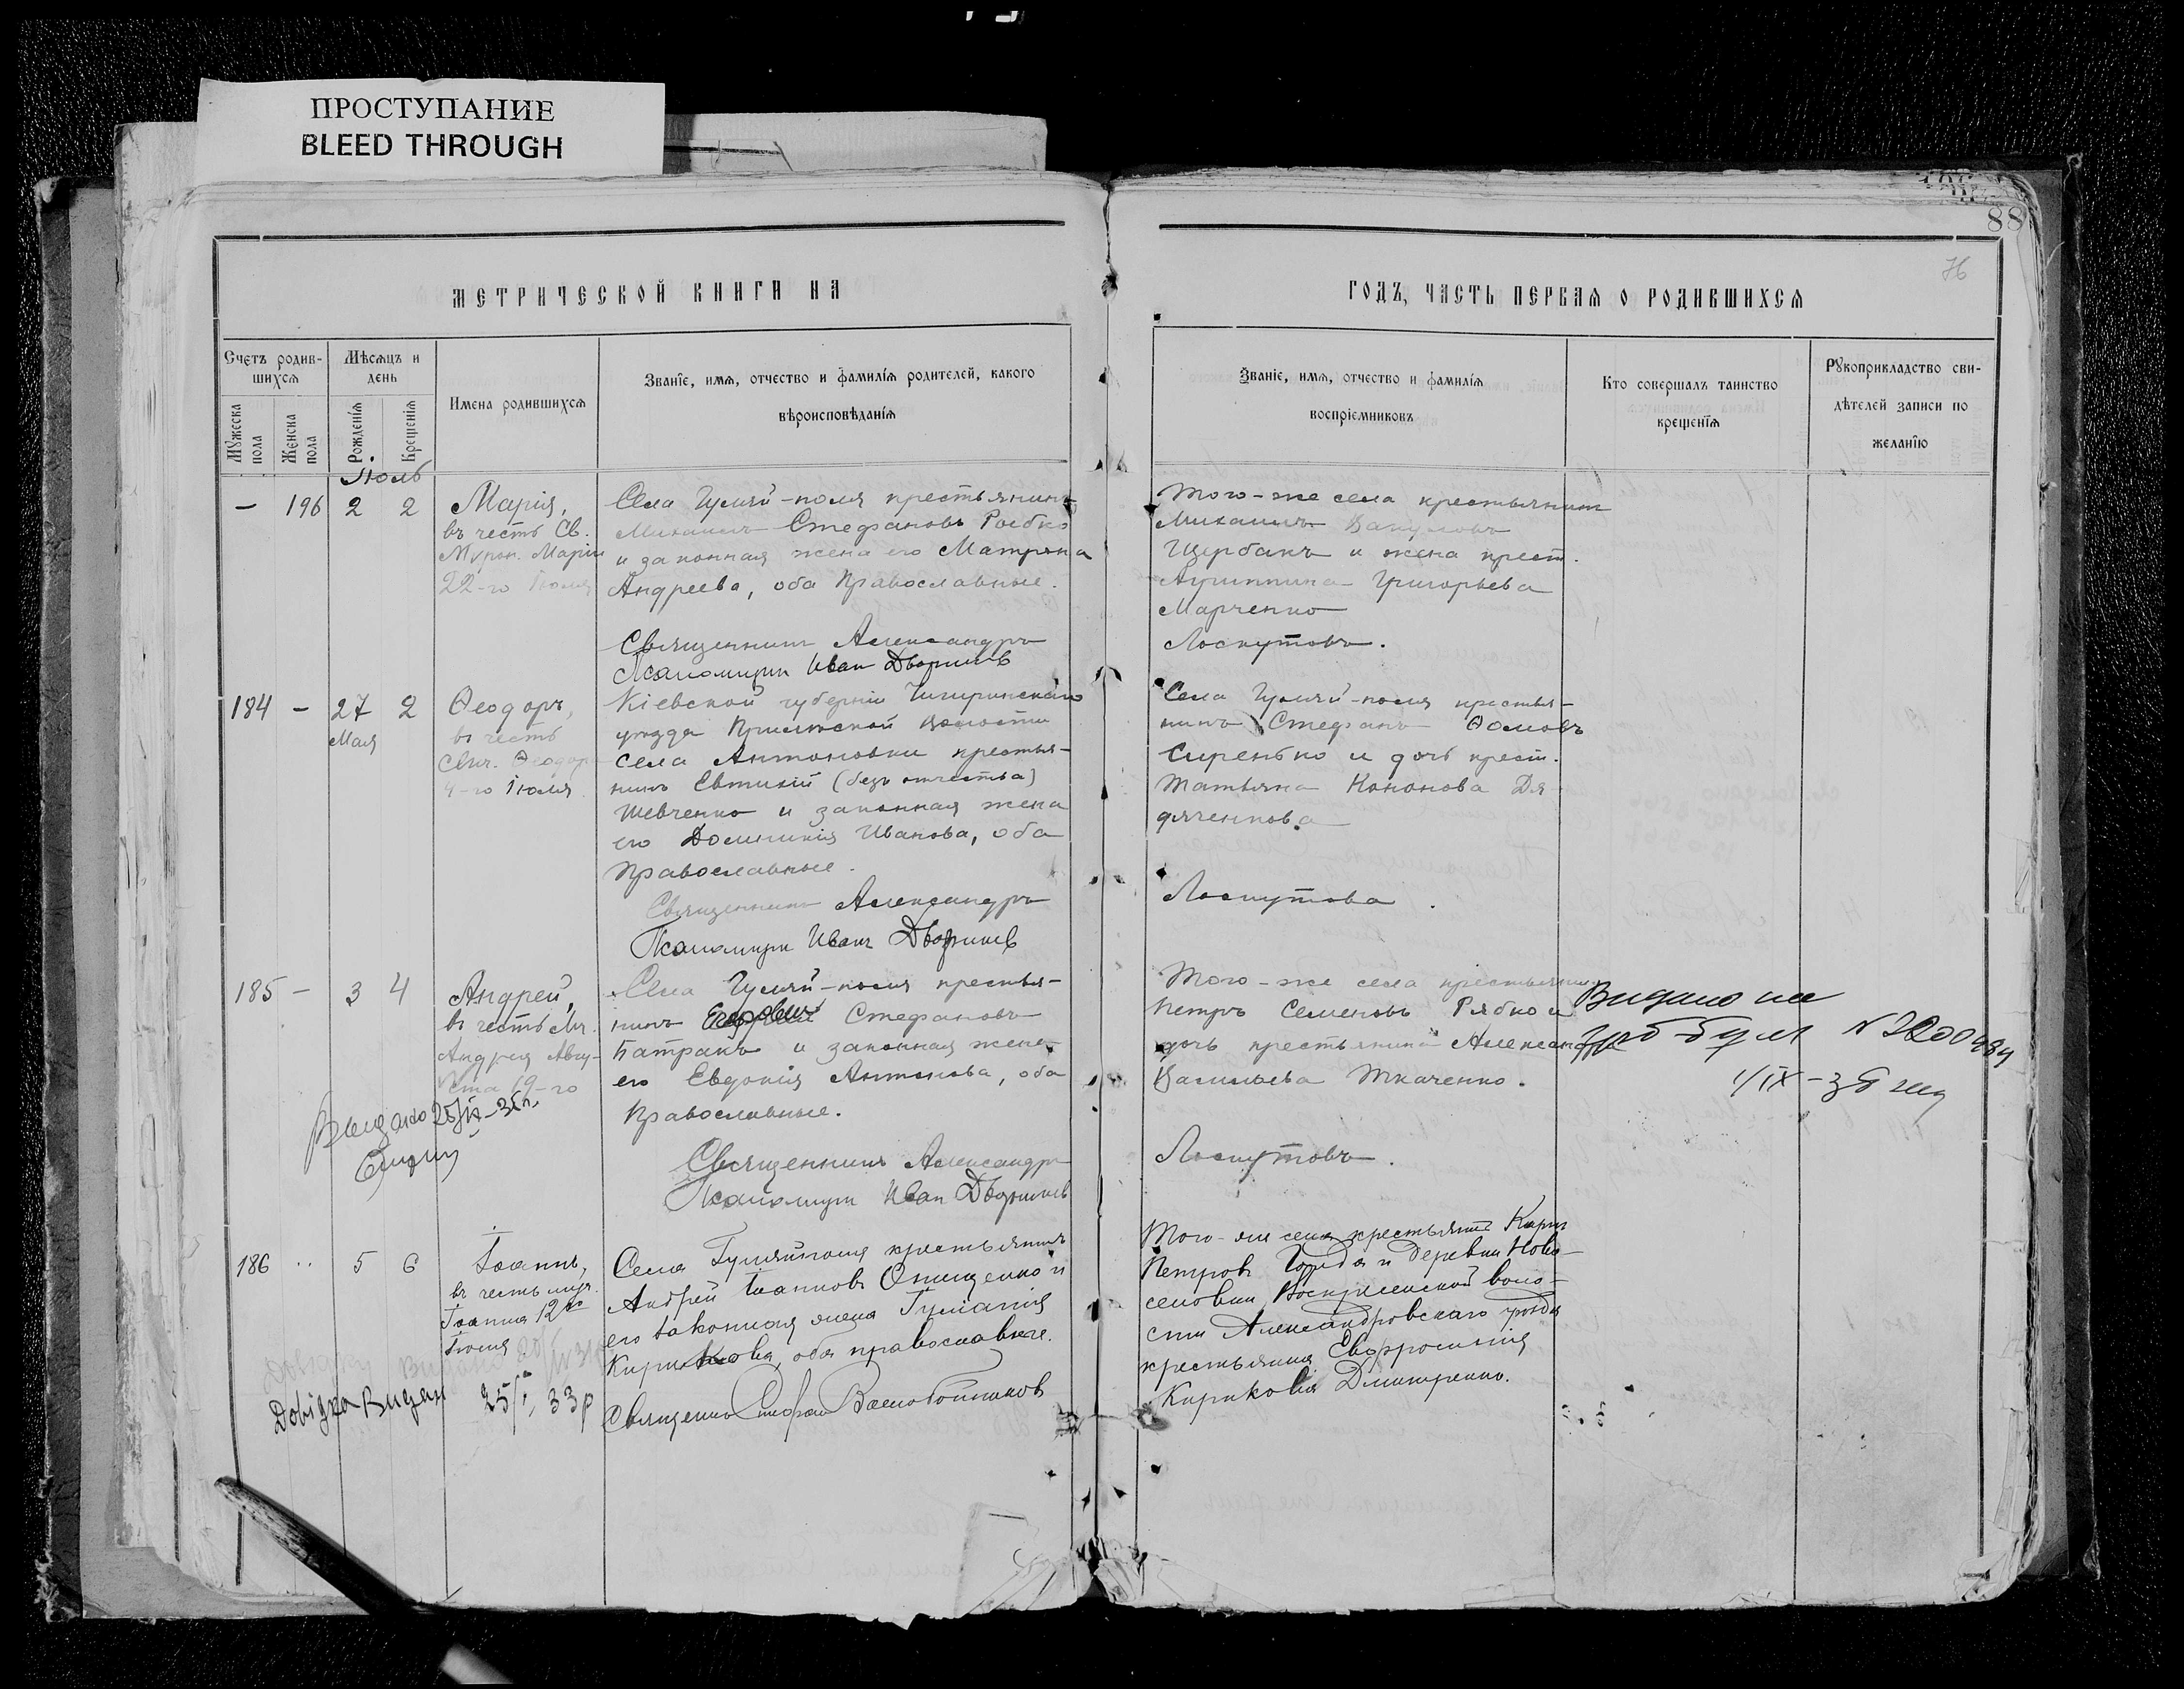 ПРОСТУПАНИЕ
BLEED THROUGH
88
76
МЕТРИЧЕСКОЙ КНИГИ НА
ГОДЪ, ЧАСТЬ ПЕРВАЯ О РОДИВШИХСЯ
Счетъ родив-
шихся
Мужеска пола
Женска пола
Мѣсяцъ и
день
Рожденія
Крещенія
Имена родившихся
Званіе, имя, отчество и фамилія родителей, какого
вѣроисповѣданія
Званіе, имя, отчество и фамилія
воспріемниковъ
Кто совершалъ таинство
крещенія
Рукоприкладство сви-
дѣтелей записи по
желанію
Іюль
– 196 2 2
Марія,
въ честь Св.
Мурон. Маріи
22-го Іюля
Села Гуляй-поля крестьянинъ
Михаилъ Стефановъ Рябко
и законная жена его Матрона
Андреева, оба Православные.
Священникъ Александръ
Псаломщик Иван
Того-же села крестьянин
Михаилъ Вакуловъ
Щербакъ и жена крест.
Агриппина Григорьева
Марченко
Лоскутовъ.
184 – 27 2
Мая
Ѳеодоръ,
въ честь
Свмч. Ѳеодор
4-го Іюля
Кіевской губерніи Чигиринскаго
уѣзда волости
села Антоновки крестья-
нинъ Евтихій (безъ отчества)
Шевченко и законная жена
его Домникія Иванова, оба
Православные.
Священникъ Александръ
Псаломщик Иванъ
Села Гуляй-поля крестья-
нинъ Стефанъ Ѳомовъ
Сиренько и дочь крест.
Татьяна Кононова Дя-
дяченкова
Лоскутовъ.
185 – 3 4
Андрей,
въ честь Мч.
Андрея Авгу-
ста 19-го
Села Гуляй-поля крестья-
нинъ Стефановъ
Батракъ и законная жена
его Евдокія Антонова, оба
Православные.
Священникъ Александръ
Псаломщик Иван
Того-же села крестьянин
Петръ Семеновъ Рябко и
дочь крестьянина Александра
Васильева Ткаченко.
Лоскутовъ.
Видано на
N 2200484
1/IX – 35
Выдано 25/IX – 35
186 .. 5 6
Іоаннъ,
въ честь муч.
Іоанна 12го
Іюля
Села Гуляйполя крестьянинъ
Андрей Іоанновъ Онищенко и
его законная жена Гуліанія
Кирикова, оба православные.
Священникъ Стефан
Того-же села крестьянинъ Кирик
Петровъ и деревни Ново-
селовки, Воскресенской воло-
сти Александровскаго уѣзда
крестьянка Евфросинія
Кирикова Дмитренко.
Довідка Видан 25/I, 33р